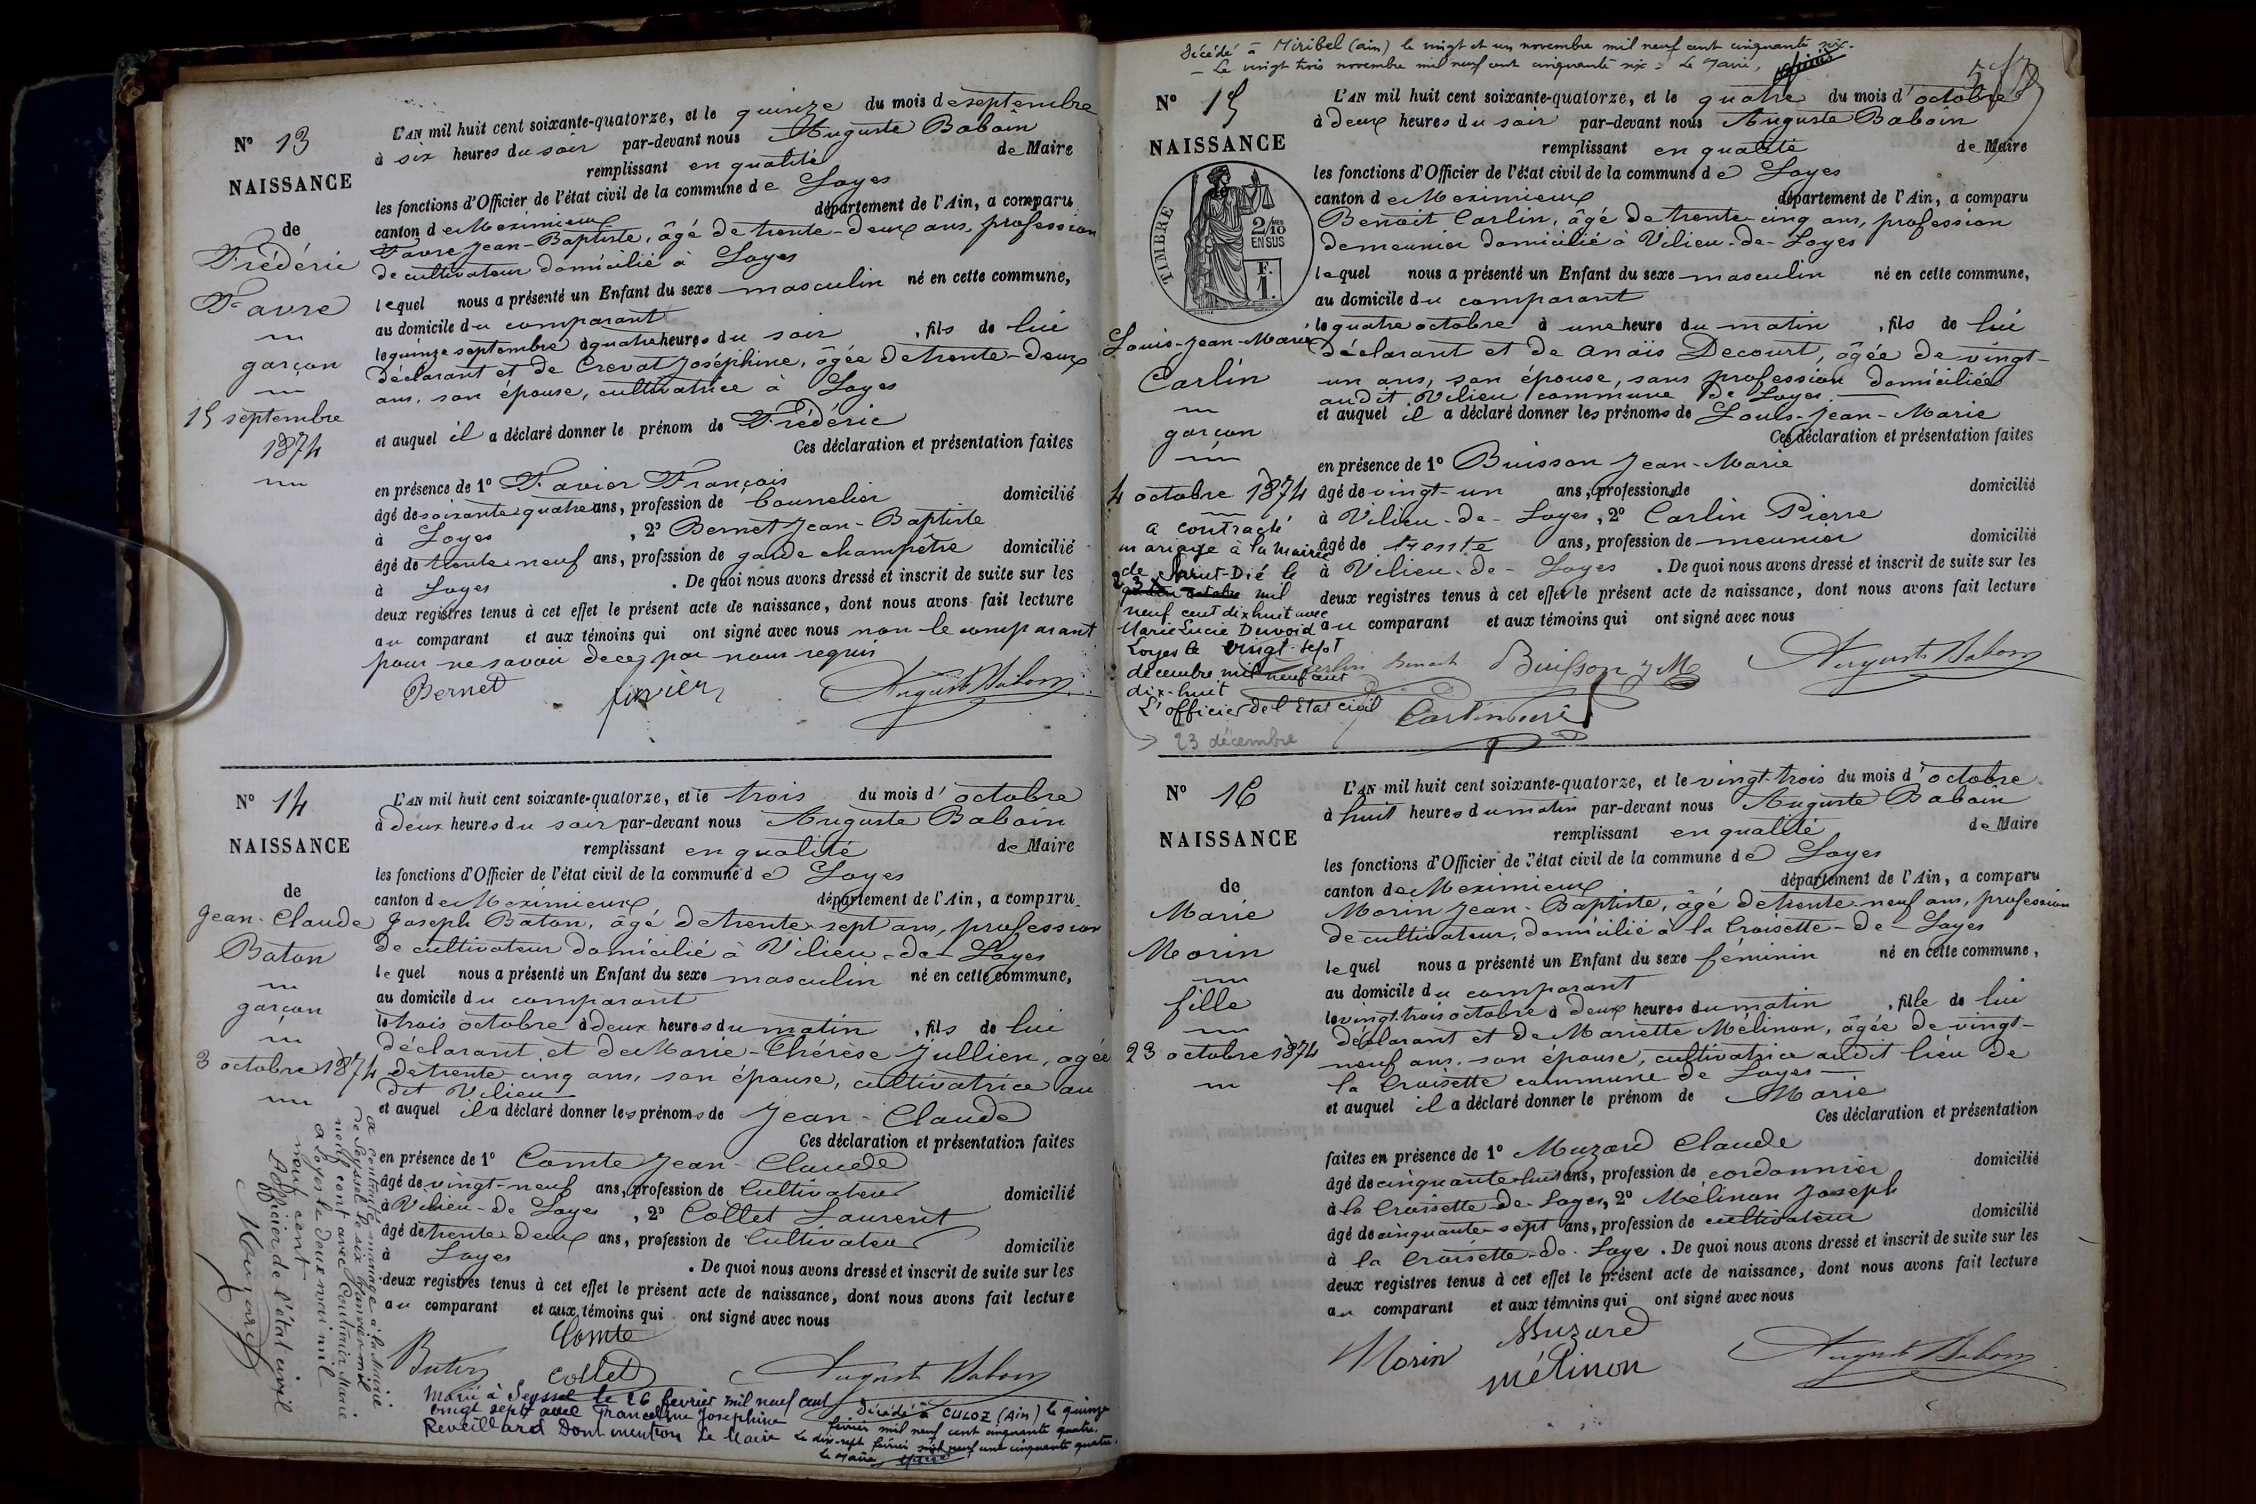 N° 13
NAISSANCE
de
Frédéric
Favre
garçon
15 septembre
1874
L'AN mil huit cent soixante-quatorze, et le quinze du mois de septembre
à six heures du soir par-devant nous Auguste Baboin
remplissant en qualité de Maire
les fonctions d'Officier de l'état civil de la commune de Loyes
canton de Meximieux département de l'Ain, a comparu
Favre Jean-Baptiste, âgé de trente-deux ans, profession
de cultivateur domicilié à Loyes
lequel nous a présenté un Enfant du sexe masculin né en cette commune,
au domicile du comparant
le quinze septembre à quatre heures du soir, fils de lui
déclarant et de Crevat Joséphine, âgée de trente-deux
ans, son épouse, cultivatrice à Loyes
et auquel il a déclaré donner le prénom de Frédéric
Ces déclaration et présentation faites
en présence de 1° Favier François
âgé de soixante quatre ans, profession de tonnelier domicilié
à Loyes, 2° Bernet Jean-Baptiste
âgé de trente neuf ans, profession de garde champêtre domicilié
à Loyes. De quoi nous avons dressé et inscrit de suite sur les
deux registres tenus à cet effet le présent acte de naissance, dont nous avons fait lecture
au comparant et aux témoins qui ont signé avec nous non le comparant
pour ne savoir de ce par nous requis
Bernet Favier Auguste Baboin
N° 14
NAISSANCE
de
Jean-Claude
Baton
garçon
3 octobre 1874
L'AN mil huit cent soixante-quatorze, et le trois du mois d'octobre
à deux heures du soir par-devant nous Auguste Baboin
remplissant en qualité de Maire
les fonctions d'Officier de l'état civil de la commune de Loyes
canton de Meximieux département de l'Ain, a comparu
Joseph Baton, âgé de trente sept ans, profession
de cultivateur domicilié à Vilieu-de-Loyes
lequel nous a présenté un Enfant du sexe masculin né en cette commune,
au domicile du comparant
le trois octobre à deux heures du matin, fils de lui
déclarant et de Marie-Thérèse Jullien, agée
de trente cinq ans, son épouse, cultivatrice au
dit Vilieu
et auquel il a déclaré donner les prénoms de Jean-Claude
Ces déclaration et présentation faites
en présence de 1° Comte Jean-Claude
âgé de vingt-neuf ans, profession de Cultivateur domicilié
à Vilieu-de Loyes, 2° Collet Laurent
âgé de trente deux ans, profession de Cultivateur domicilié
à Loyes. De quoi nous avons dressé et inscrit de suite sur les
deux registres tenus à cet effet le présent acte de naissance, dont nous avons fait lecture
au comparant et aux témoins qui ont signé avec nous
Comte
Collet Auguste Baboin
a contracté mariage à la Mairie
de Seyssel le six Janvier mil
neuf cent avec Marie
à Loyes le deux mai mil
neuf cent
L'officier de l'état civil
Marié à Seyssel le 26 fevrier mil neuf cent
vingt sept avec Francéline Joséphine
Reveillard Dont mention Le Maire
Décédé à CULOZ (Ain) le quinze
février mil neuf cent cinquante quatre.
Le dix-sept février mil neuf cent cinquante quatre.
Le Maire
Décédé à Miribel (ain) le vingt et un novembre mil neuf cent cinquante six.
- Le vingt trois novembre mil neuf cent cinquante six - Le Maire,
N° 15
NAISSANCE
TIMBRE
2/10
EN SUS
F.
1.
Louis-Jean-Marie
Carlin
garçon
4 octobre 1874
a contracté
mariage à la mairie
de Saint-Dié le
23 mil
neuf cent dix huit avec
Marie Lucie Duvoid
Loyes le vingt-sept
décembre mil neuf cent
dix-huit
L'officier de l'Etat civil
23 décembre
L'AN mil huit cent soixante-quatorze, et le quatre du mois d'octobre
à deux heures du soir par-devant nous Auguste Baboin
remplissant en qualité de Maire
les fonctions d'Officier de l'état civil de la commune de Loyes
canton de Meximieux département de l'Ain, a comparu
Benoit Carlin, âgé de trente-cinq ans, profession
de meunier domicilié à Vilieu-de-Loyes
lequel nous a présenté un Enfant du sexe masculin né en cette commune,
au domicile du comparant
le quatre octobre à une heure du matin, fils de lui
déclarant et de Anaïs Decourt, âgée de vingt-
un ans, son épouse, sans profession domiciliée
audit Vilieu commune de Loyes
et auquel il a déclaré donner les prénoms de Louis-Jean-Marie
Ces déclaration et présentation faites
en présence de 1° Buisson Jean-Marie
âgé de vingt-un ans, profession de domicilié
à Vilieu-de-Loyes, 2° Carlin Pierre
âgé de trente ans, profession de meunier domicilié
à Vilieu-de-Loyes. De quoi nous avons dressé et inscrit de suite sur les
deux registres tenus à cet effet le présent acte de naissance, dont nous avons fait lecture
au comparant et aux témoins qui ont signé avec nous
Carlin Benoit Buisson J M Auguste Baboin
N° 16
NAISSANCE
de
Marie
Morin
fille
23 octobre 1874
L'AN mil huit cent soixante-quatorze, et le vingt-trois du mois d'octobre
à huit heures du matin par-devant nous Auguste Baboin
remplissant en qualité de Maire
les fonctions d'Officier de l'état civil de la commune de Loyes
canton de Meximieux département de l'Ain, a comparu
Morin Jean-Baptiste, âgé de trente-neuf ans, profession
de cultivateur, domicilié à la Croisette-de-Loyes
lequel nous a présenté un Enfant du sexe féminin né en cette commune,
au domicile du comparant
le vingt-trois octobre à deux heures du matin, fille de lui
déclarant et de Mariette Mélinon, âgée de vingt-
neuf ans, son épouse, cultivatrice audit lieu de
la Croisette commune de Loyes
et auquel il a déclaré donner le prénom de Marie
Ces déclaration et présentation
faites en présence de 1° Muzard Claude
âgé de cinquante-huit ans, profession de cordonnier domicilié
à la Croisette-de-Loyes, 2° Mélinon Joseph
âgé de cinquante-sept ans, profession de cultivateur domicilié
à la Croisette-de-Loyes. De quoi nous avons dressé et inscrit de suite sur les
deux registres tenus à cet effet le présent acte de naissance, dont nous avons fait lecture
au comparant et aux témoins qui ont signé avec nous
Muzard
Morin Mélinon Auguste Baboin